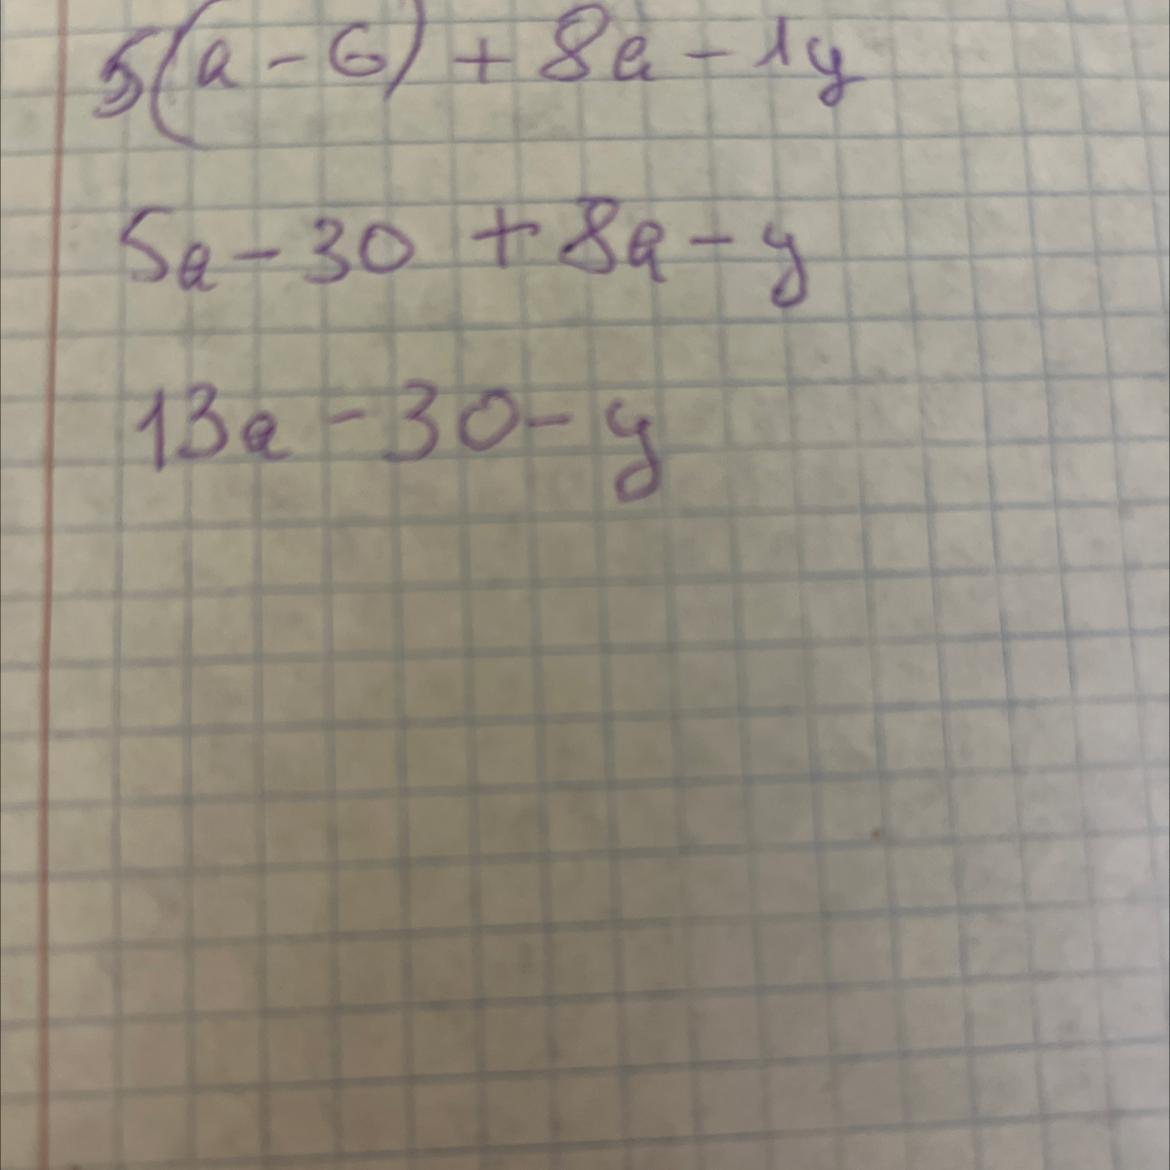 5(a - 6) + 8a - 1y
5a - 30 + 8a - y
13a - 30 - y